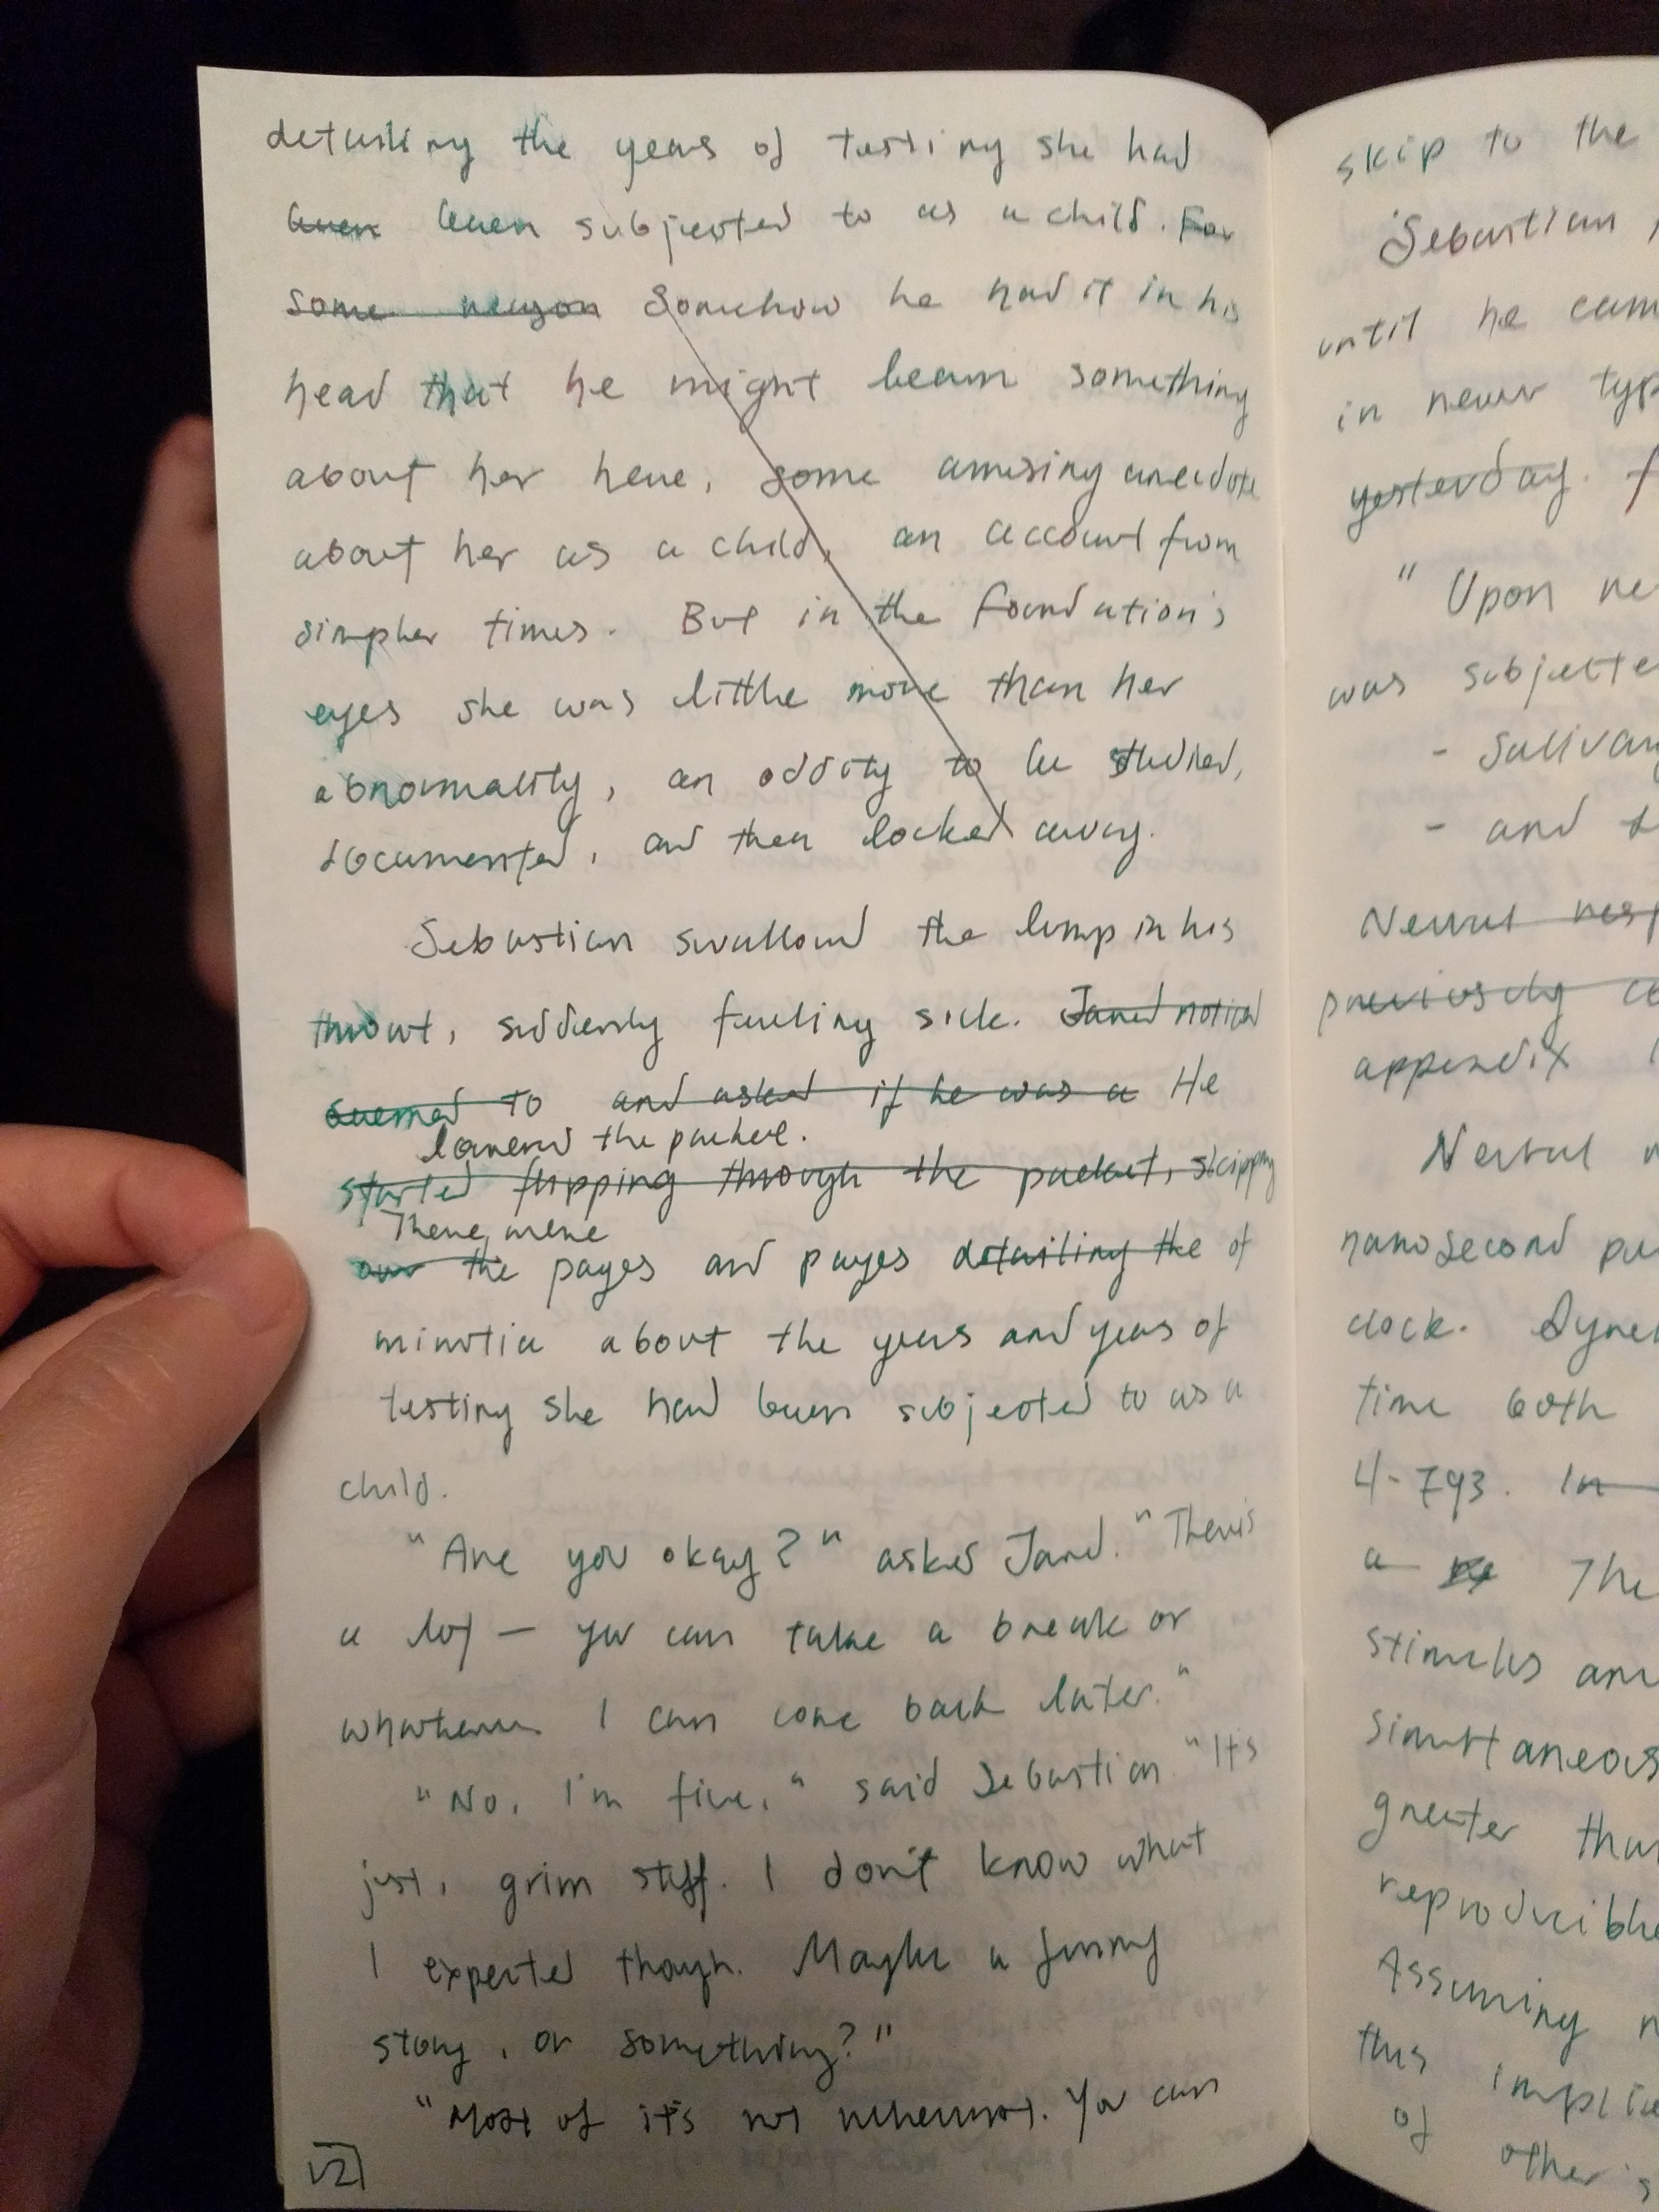 detailing the years of testing she had
been been subjected to as a child. For
some reason Somehow he had it in his
head that he might learn something
about her here, some amusing anecdote
about her as a child, an account from
simpler times. But in the Foundation's
eyes she was little more than her
abnormality, an oddity to be studied,
documented, and then locked away.
Sebastian swallowed the lump in his
throat, suddenly feeling sick. Jared noticed
seemed to and asked if he was a He
lowered the packet.
started flipping through the packet, skipping
There were
over the pages and pages detailing the of
minutia about the years and years of
testing she had been subjected to as a
child.
"Are you okay?" asked Jared. "There's
a lot — you can take a break or
whatever I can come back later."
"No, I'm fine," said Sebastian "It's
just, grim stuff. I don't know what
I expected though. Maybe a funny
story, or something?"
"Most of it's not relevant. You can
12
skip to the
Sebastian
until he
in newer
yesterday.
"Upon
was
-
- and
Neural
previously
appendix
Neural
nanosecond
clock.
time both
4-793. In
a The
stimulus
simultaneous
greater
reproducible
Assuming
this
of other